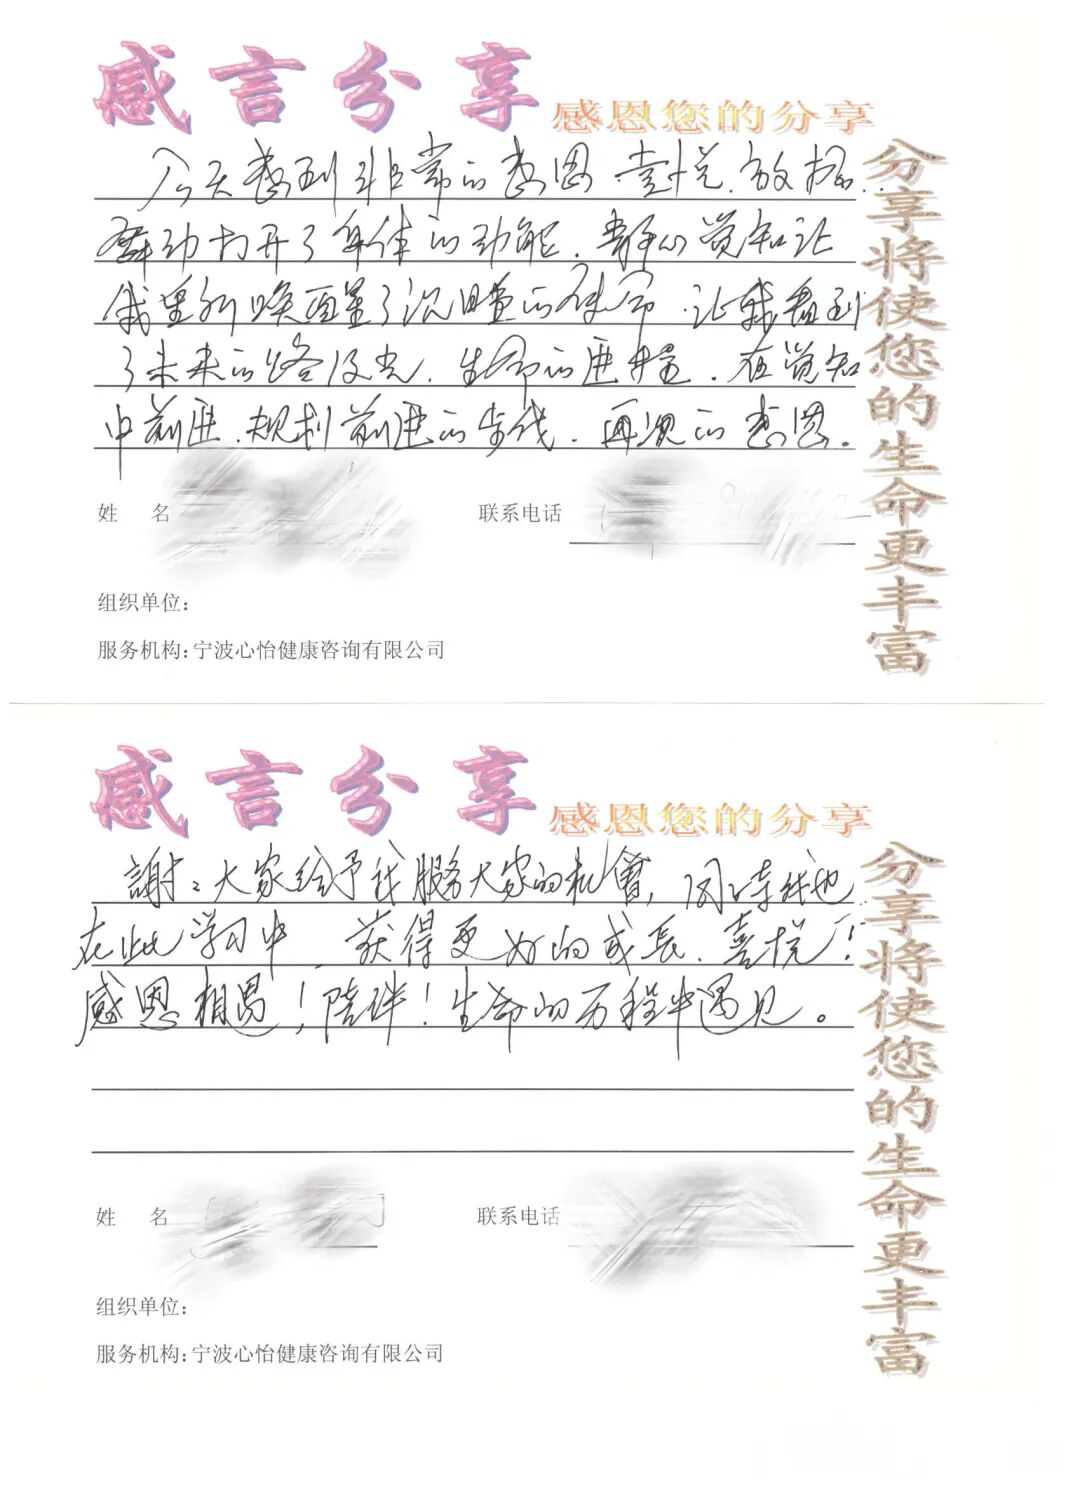 感言分享
感恩您的分享
今天感到非常的感恩、喜悦、放松..
舞动打开了身体的动能、静心觉知让
我重新唤醒了沉睡的使命、让我看到
了未来的路及光、生命的进程、在觉知
中前进、规划前进的步伐、再次的感恩。
姓 名
联系电话
组织单位:
服务机构:宁波心怡健康咨询有限公司
分享将使您的生命更丰富
感言分享
感恩您的分享
謝:大家给予我服务大家的机會,同时我也
在此学习中、获得更好的成長、喜悦!
感恩相遇!陪伴!生命的历程中遇见。
姓 名
联系电话
组织单位:
服务机构:宁波心怡健康咨询有限公司
分享将使您的生命更丰富